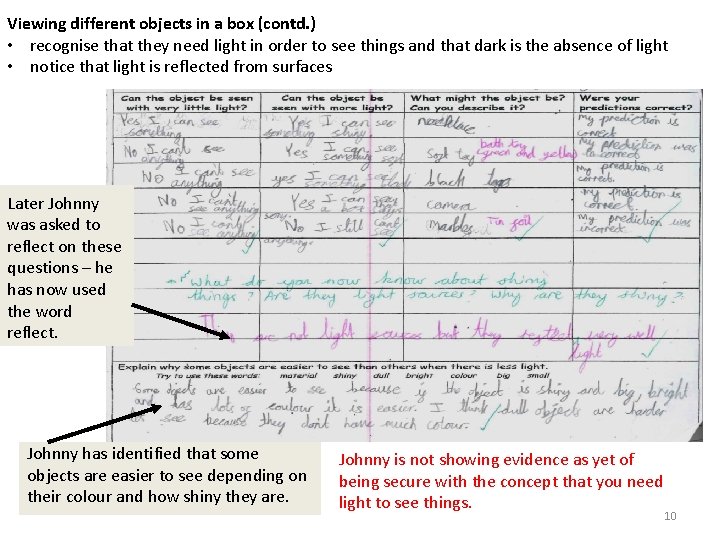 Viewing different objects in a box (contd.)
• recognise that they need light in order to see things and that dark is the absence of light
• notice that light is reflected from surfaces
Can the object be seen with very little light? Can the object be seen with more light? What might the object be? Can you describe it? Were your predictions correct?
Yes I can see something Yes I can see something shiny necklace My prediction is correct
No I cant see anything Yes I can see something soft toy bath toy green and yellow My prediction was correct
No I cant see anything yes I can see something black black My prediction is correct.
No I cant see anything Yes I can see a box camera My prediction is correct
No I cant see anything No I still cant see marbles Tin foil My prediction was incorrect
Later Johnny
was asked to
reflect on these
questions – he
has now used
the word
reflect.
What do you now know about shiny
things? Are they light sources? Why are they shiny?
are not light sources but they reflect very well
light
Explain why some objects are easier to see than others when there is less light.
Try to use these words: material shiny dull bright colour big small
Some objects are easier to see because if the object is shiny and big, bright
and has lots of colour it is easier. I think dull objects are harder
to see because they don't have much colour.
Johnny has identified that some
objects are easier to see depending on
their colour and how shiny they are.
Johnny is not showing evidence as yet of
being secure with the concept that you need
light to see things.
10